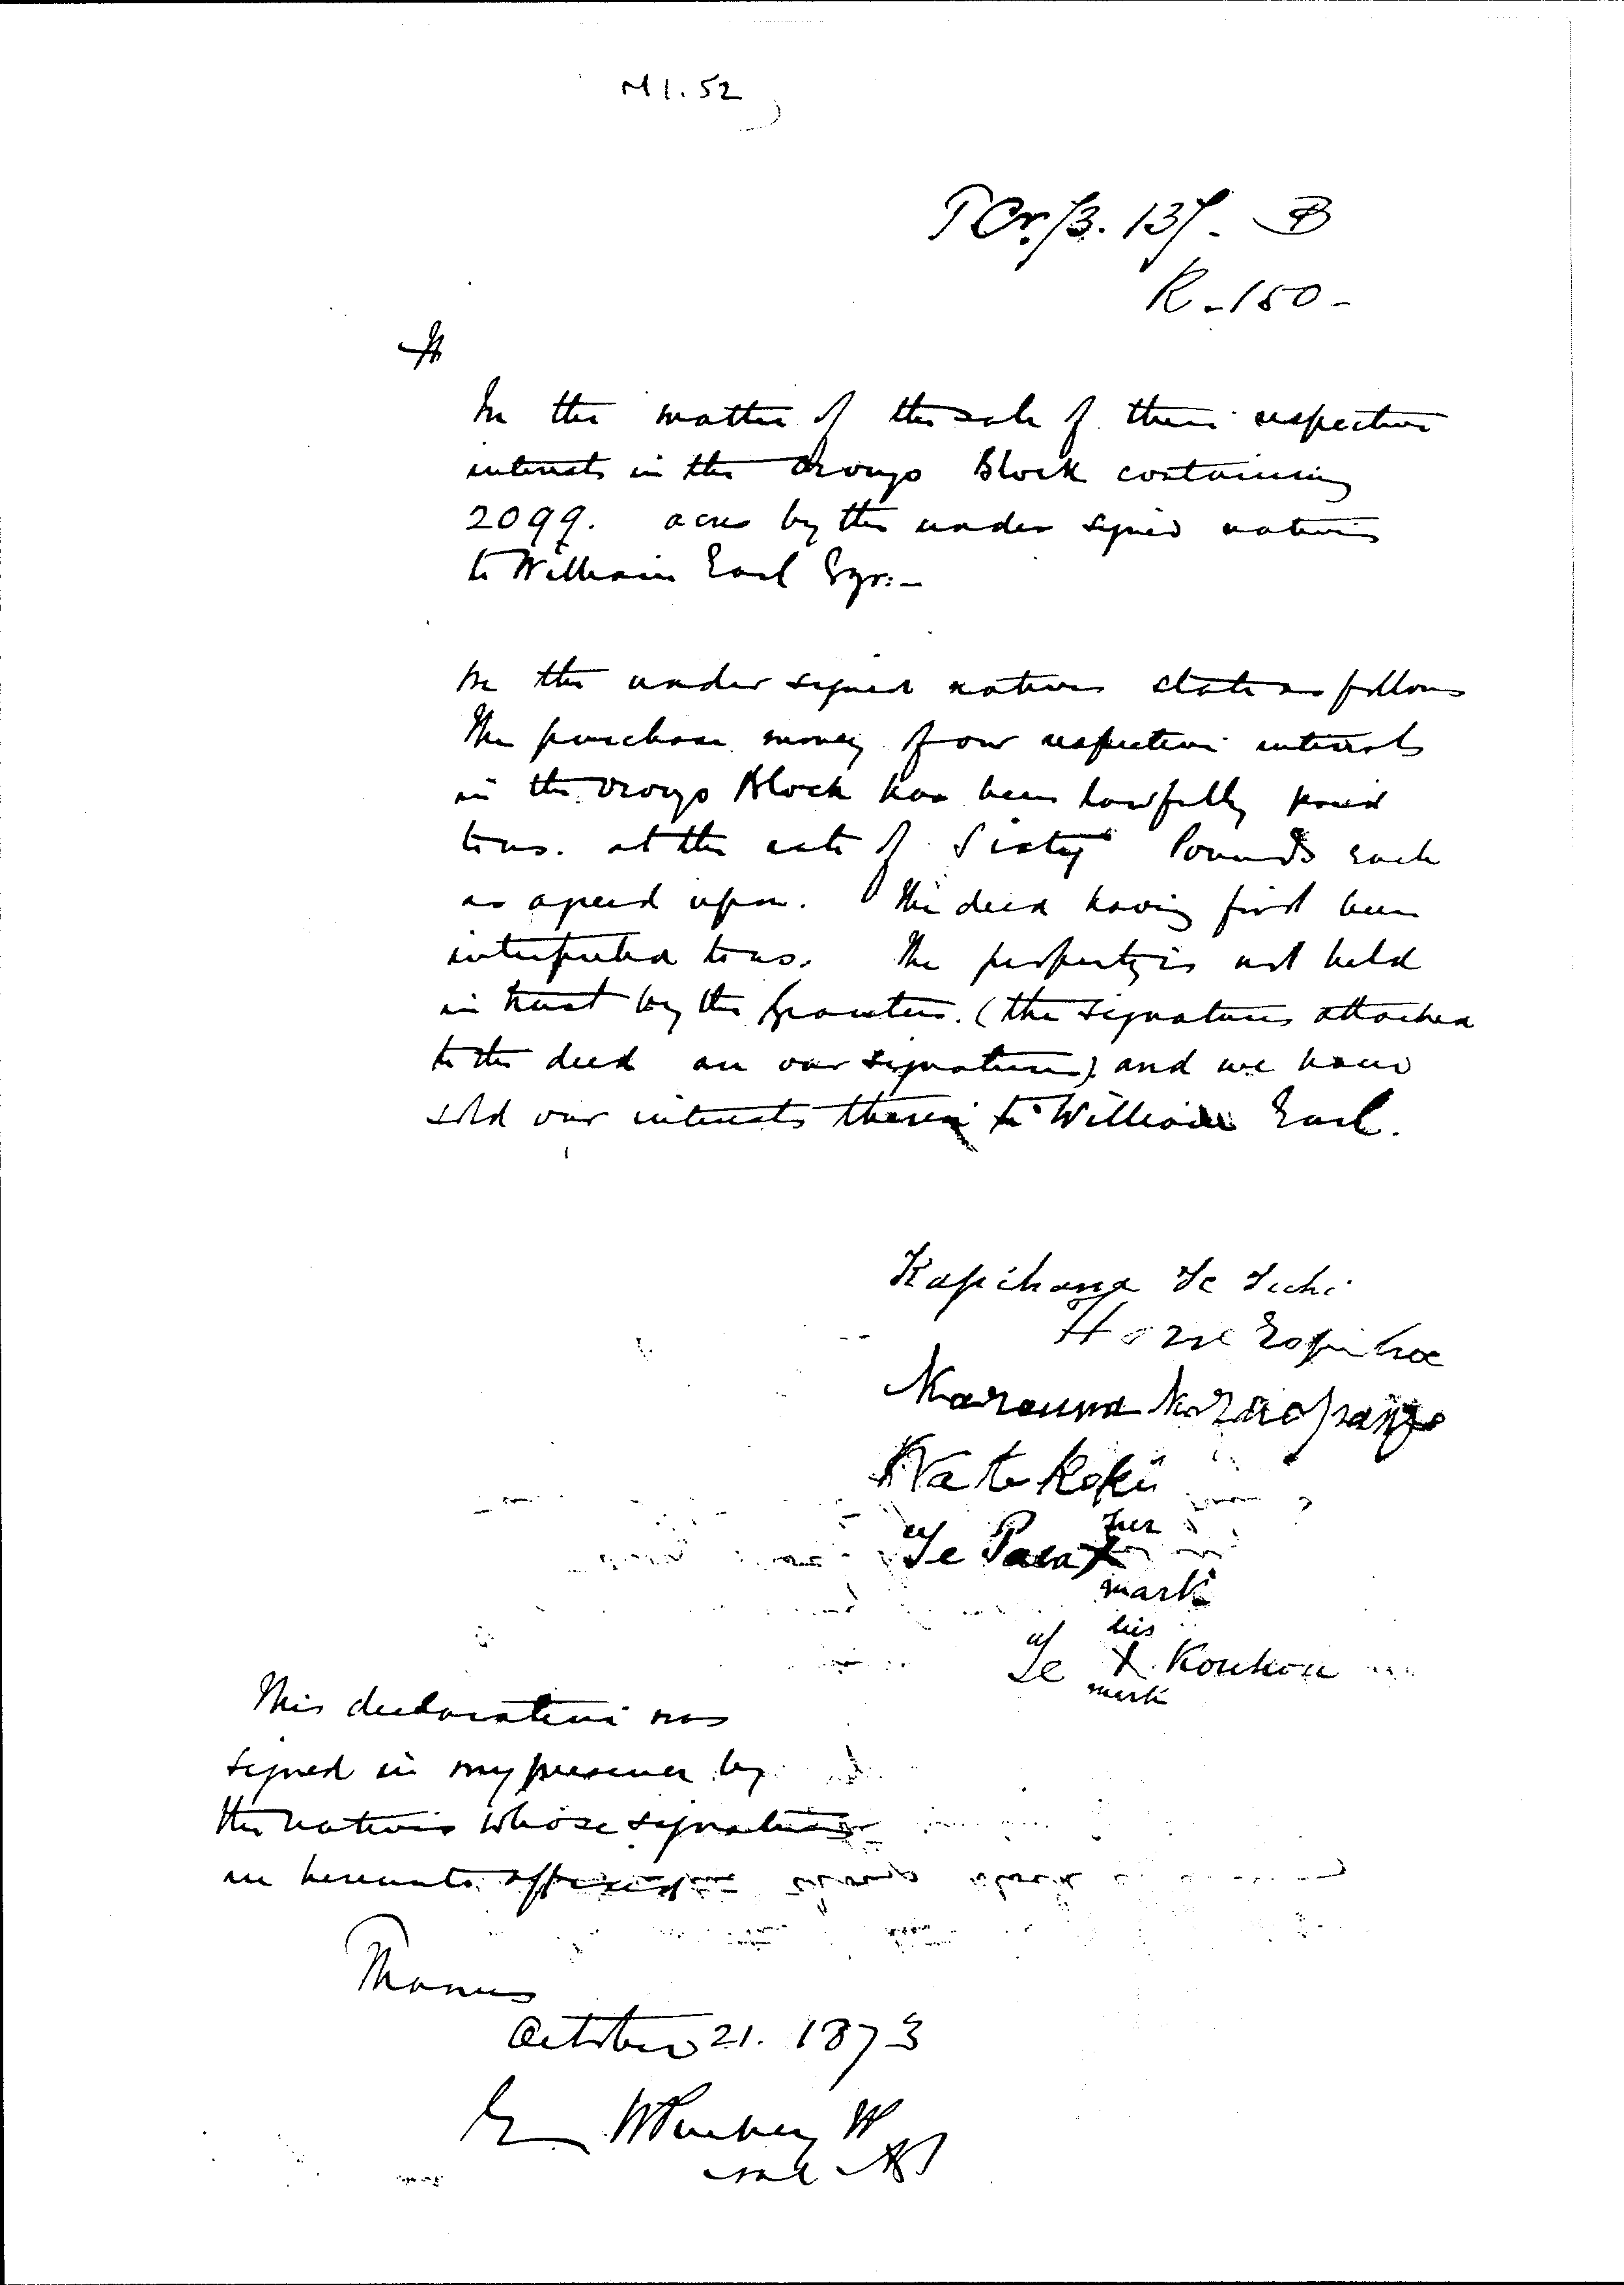 M 1. 52
T Cr. 73. 137 - B
R. 150 -
In the matter of the sale of their respective
interests in the Orongo Block containing
2099. acres by the under signed natives
to William Earl Esqr: -
We the under signed natives state as follows
The purchase money of our respective interests
in the Orongo Block has been lawfully paid
to us. at the rate of Sixty Pounds each
as agreed upon. The deed having first been
interpreted to us. The property is not held
in trust by the Grantees. (the signatures attached
to the deed are our signatures) and we have
sold our interests therein to William Earl.
Kapihana Te Tuhi
Hore Ropihoe
Karauna
Wa te Koki
Te Paea X her mark
Te X Koukou his mark
This declaration was
signed in my presence by
the natives whose signatures
are hereunto affixed
Thames
October 21. 1873